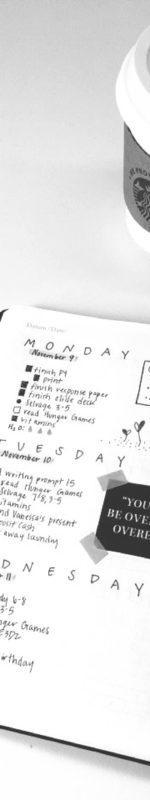 Datum / Date:
MONDAY
November 9
finish P9
print
finish response paper
finish slide deck
Selvage 3-5
read Hunger Games
vitamins
H₂O:
TUESDAY
November 10
writing prompt 15
read Hunger Games
Selvage 7/8, 3-5
vitamins
Vanessa's present
cash
away laundry
"YOU
BE OVE
OVERE
DNESDAY
11
6-8
3-5
nger Games
E3D2
irthday